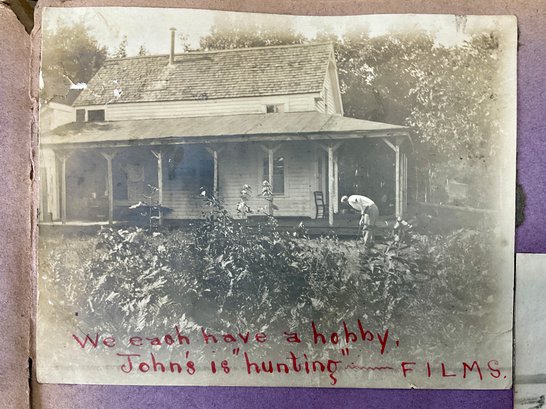 We each have a hobby,
John's is "hunting" FILMS.